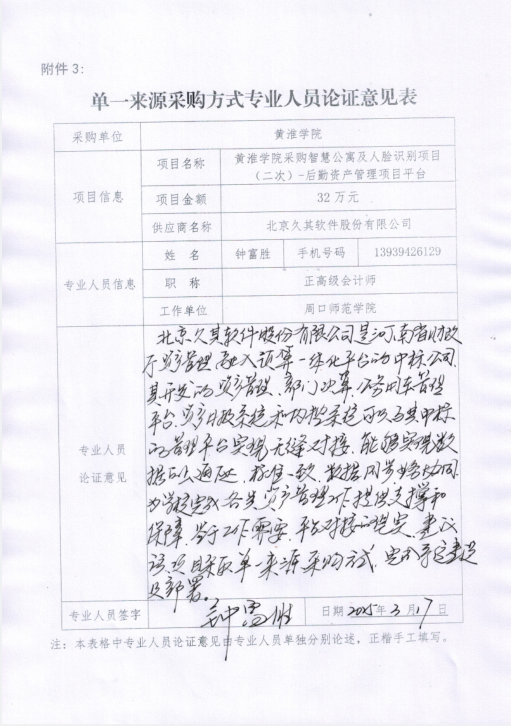 附件 3:
单一来源采购方式专业人员论证意见表
采购单位 黄淮学院
项目信息 项目名称 黄淮学院采购智慧公寓及人脸识别项目
（二次）-后勤资产管理项目平台
项目金额 32 万元
供应商名称 北京久其软件股份有限公司
专业人员信息 姓 名 钟富胜 手机号码 13939426129
职 称 正高级会计师
工作单位 周口师范学院
专业人员
论证意见
北京久其软件股份有限公司是河南省财政
厅资产管理融入预算一体化平台的中标公司,
其开发的资产管理、部门决算、公务用车管理
平台、资产月报系统和内控系统可以与其中标
的管理平台实现无缝对接,能够实现数
据口径 标准一致、数据同步业务协同
为学校完成各类资产管理工作提供支撑和
保障。鉴于工作需要、平台对接的现实,建议
该项目采取单一来源采购方式,
及部署。
专业人员签字 钟富胜 日期 2025年 3月 17日
注：本表格中专业人员论证意见由专业人员单独分别论述，正楷手工填写。